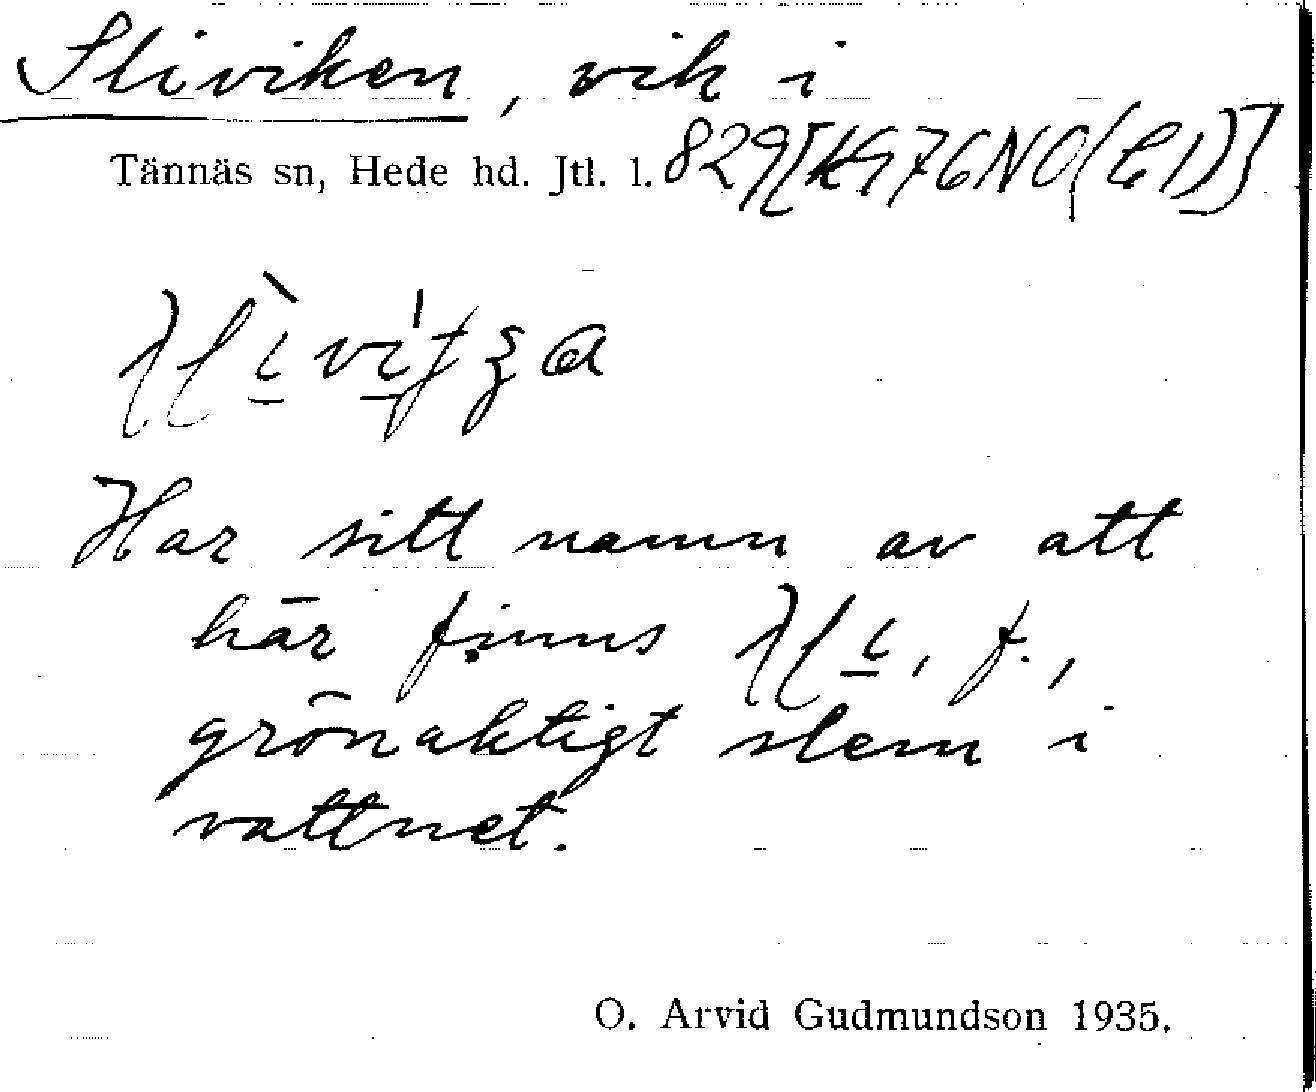 Sliviken, vik i
Tännäs sn, Hede hd. Jtl. l.
Har sitt namn av att
här finns , f.,
grönaktigt slem i
vattnet.
O. Arvid Gudmundson 1935.